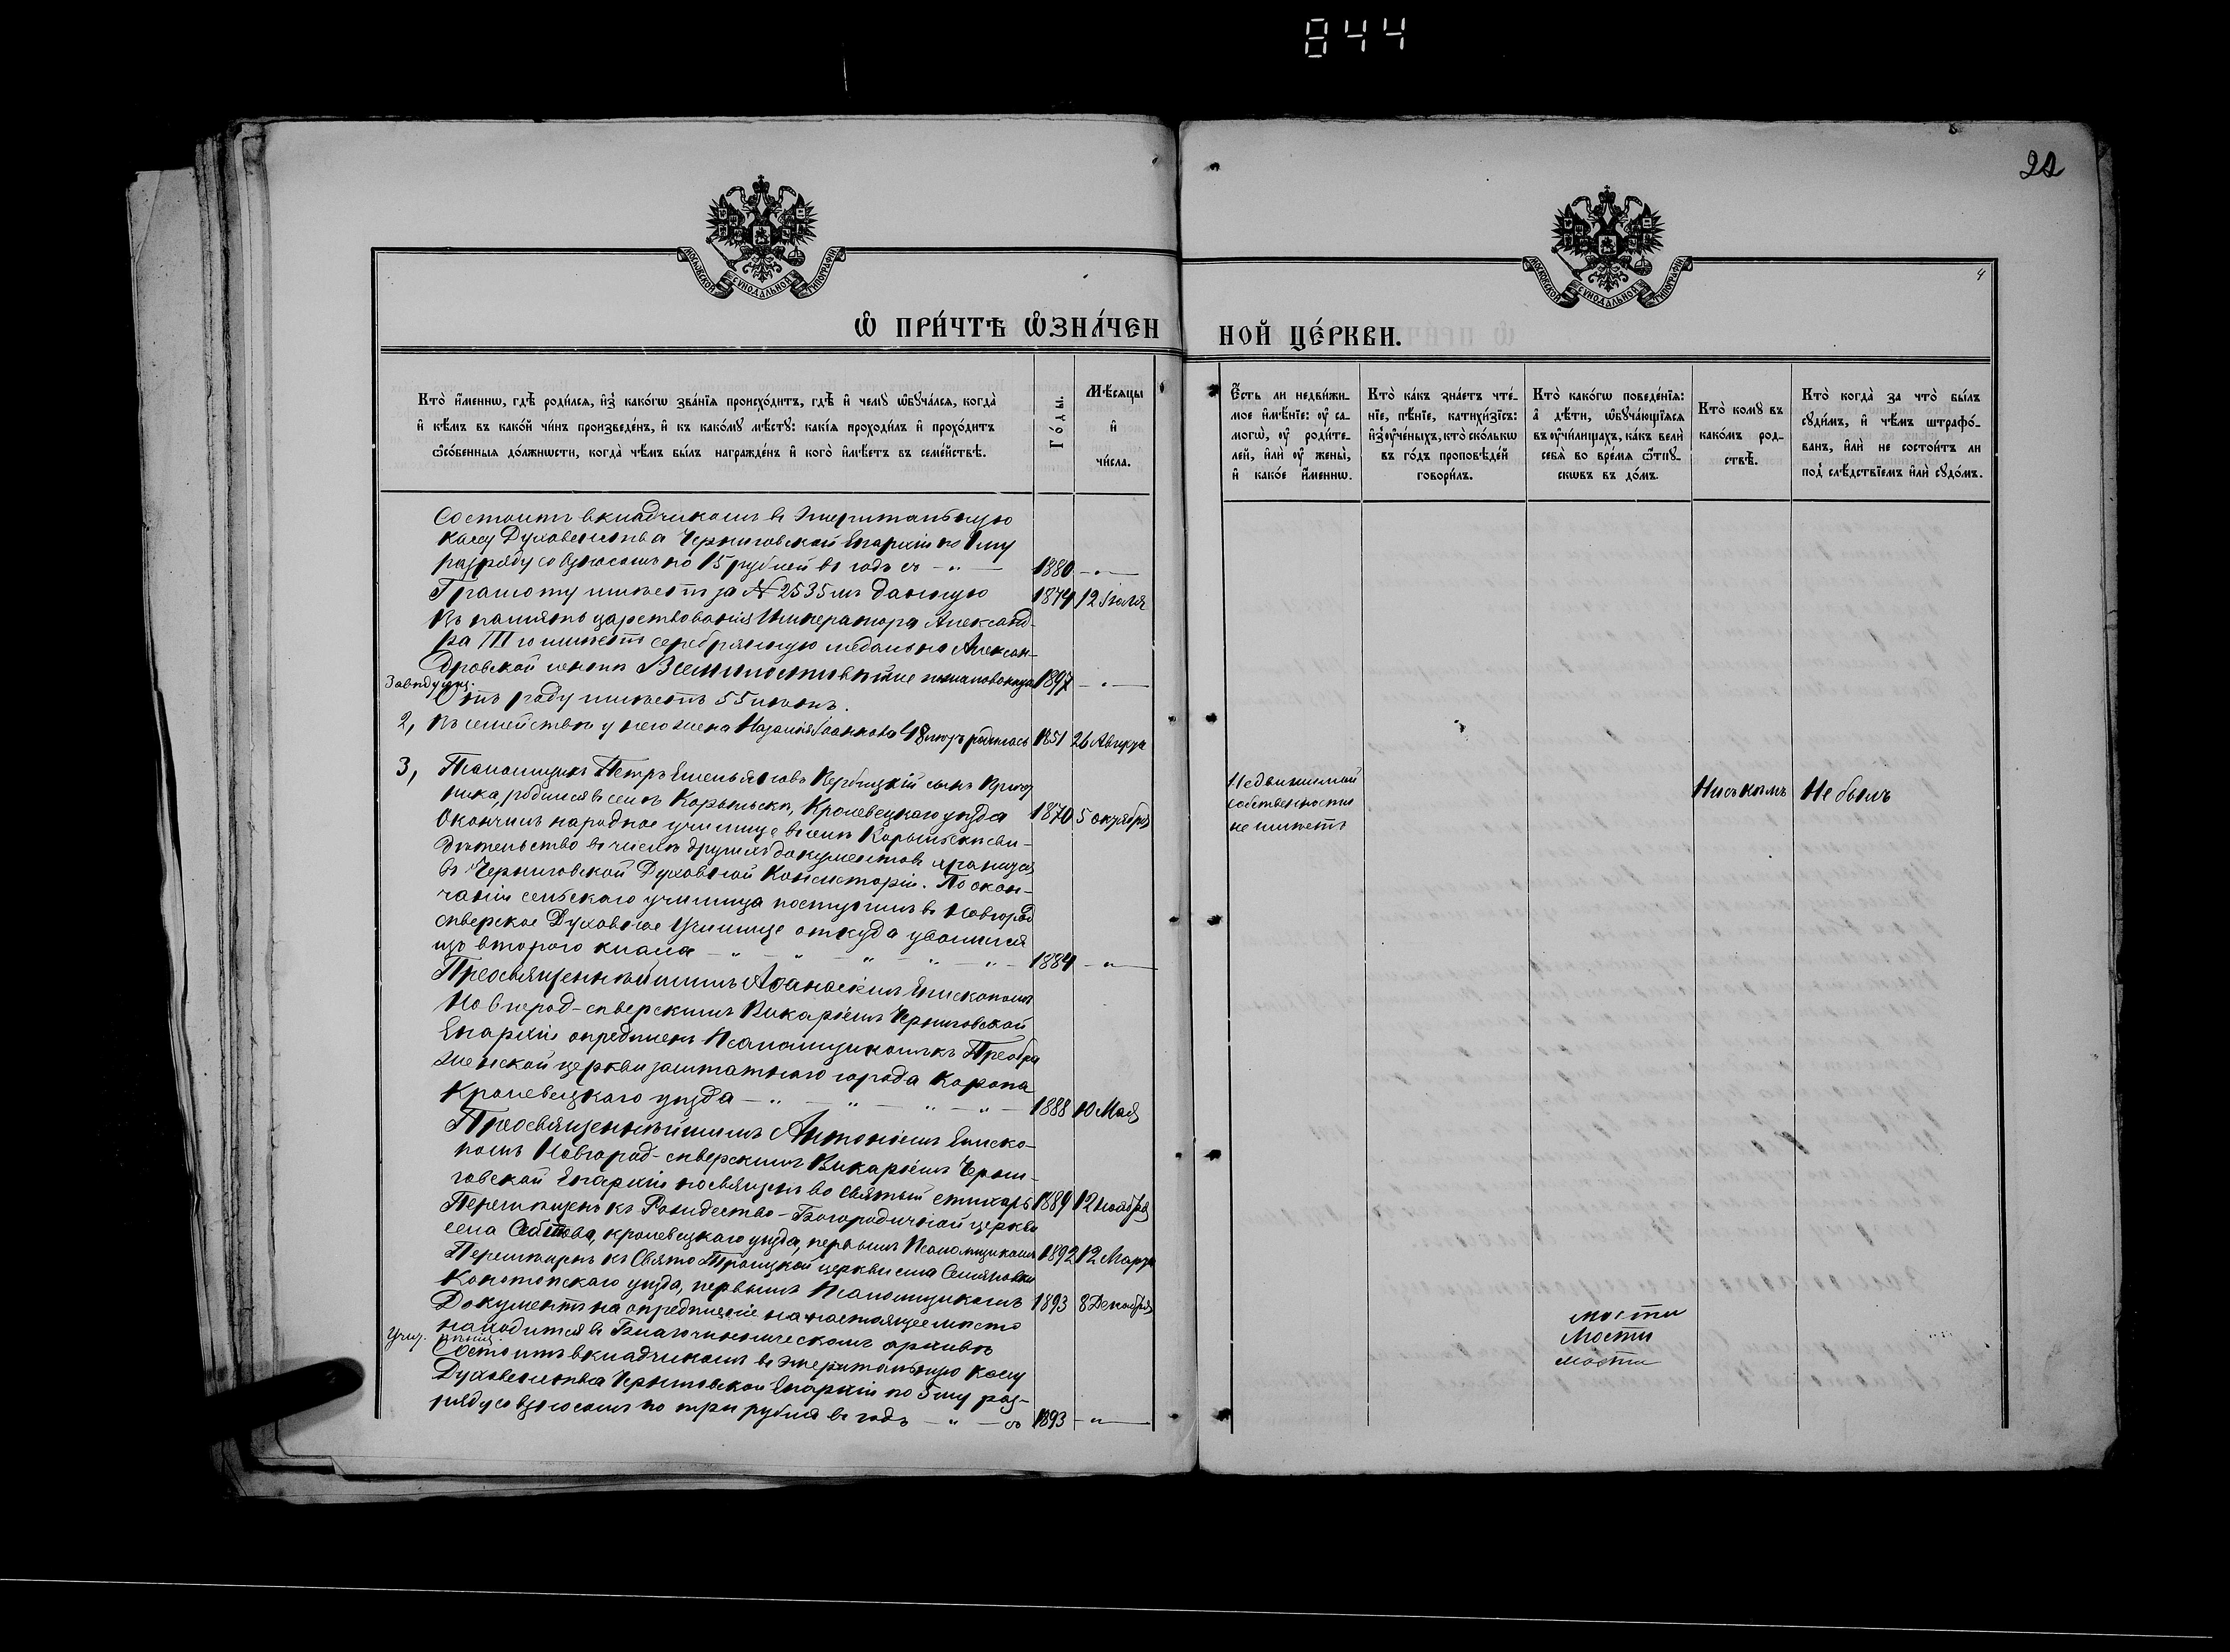 844
22
МОСКОВСКОЙ СѴНОДАЛЬНОЙ ТИПОГРАФІИ
МОСКОВСКОЙ СѴНОДАЛЬНОЙ ТИПОГРАФІИ
4
Ѽ ПРИ́ЧТѢ ѼЗНА́ЧЕН
НОЙ ЦЕ́РКВИ.
Кто̀ и҆́меннѡ, гдѣ̀ роди́лсѧ, и҆з̾ како́гѡ зва́нїѧ происхо́дитъ, гдѣ̀ и҆ чемꙋ̀ ѡ҆бꙋча́лсѧ, когда̀
и҆ кѣ́мъ въ како́й чи́нъ произведе́нъ, и҆ къ како́мꙋ мѣ́стꙋ: какі̑ѧ проходи́лъ и҆ прохо́дитъ
ѻ҆со́бенныѧ до́лжнѡсти, когда̀ чѣ́мъ бы́лъ награжде́нъ и҆ кого̀ и҆мѣ́етъ въ семе́йствѣ.
Го́ды.
Мѣ́сѧцы
и҆
чи́сла.
Є҆́сть ли недви́жи-
мое и҆мѣ́нїе: оу҆ са-
могѡ̀, оу҆ роди́те-
лей, и҆лѝ оу҆ жены̀,
и҆ како́е и҆́меннѡ.
Кто̀ ка́къ зна́етъ чте́-
нїе, пѣ́нїе, катихи́зїсъ:
и҆з̾ оу҆че́ныхъ, кто̀ ско́лькѡ
въ го́дъ проповѣ́дей
говори́лъ.
Кто̀ како́гѡ поведе́нїѧ:
а҆̀ дѣ́ти, ѡ҆бꙋча́ющїѧсѧ
въ оу҆чи́лищахъ, ка́къ велѝ
себѧ̀ во вре́мѧ ѿпꙋ-
скѡвъ въ до́мъ.
Кто̀ комꙋ̀ въ
како́мъ род-
ствѣ̀.
Кто̀ когда̀ за что̀ бы́лъ
сꙋди́мъ, и҆ чѣ́мъ штрафо́-
ванъ, и҆лѝ не состои́тъ ли
под̾ слѣ́дствїемъ и҆лѝ сꙋдо́мъ.
Состоитъ вкладчикомъ въ эмеритальную
кассу Духовенства Черниговской Епархіи по 1му
разряду со взносомъ по 15 рублей въ годъ съ 1880
Грамоту имѣетъ за № 2535мъ данную 1874 12 Іюля
Въ память царствованія Императора Александ-
ра III го имѣетъ серебрянную медаль на Алексан-
дровской лентѣ Всемилостивѣйше пожалованную 1897
Отъ роду имѣетъ 55 лѣтъ.
2, Въ семействѣ у него жена Наталія Іоаннова 48 лѣтъ родилась 1851 26 Августа
3, Псаломщикъ Петръ Емельяновъ Вербицкій сынъ
родился въ селѣ Карыльскѣ, Кролевецкаго уѣзда 1870 5 октября
Окончилъ народное училище въ селѣ Карыльскѣ сви-
дѣтельство въ числѣ другихъ документовъ хранится
въ Черниговской Духовной Консисторіи. По окон-
чаніи сельскаго училища поступилъ въ Новгород
сѣверское Духовное Училище откуда уволился
изъ втораго класса 1884
Преосвященнѣйшимъ Аѳанасіемъ Епископомъ
Новгород-сѣверскимъ Викаріемъ Черниговской
Епархіи опредѣленъ Псаломщикомъ къ Преобра
женской церкви заштатнаго города Коропа
Кролевецкаго уѣзда 1888 10 Мая
Преосвященнѣйшимъ Антоніемъ Еписко-
помъ Новгород-сѣверскимъ Викаріемъ Черни-
говской Епархіи посвященъ во святый стихарь 1889 12 ноября
Перемѣщенъ къ Рождество-Богородичной церкви
села кролевецкаго уѣзда, первымъ Псаломщикомъ 1892 12 Марта
Перемѣщенъ къ Свято Троицкой церкви села Семяновки
Конотопскаго уѣзда, первымъ Псаломщикомъ 1893 8 Декабря
Документъ на опредѣленіе на настоящее мѣсто
находится въ Благочинническомъ архивѣ
Состоитъ вкладчикомъ въ эмеритальную кассу
Духовенства Черниговской Епархіи по 5му раз-
ряду со взносомъ по три рубля въ годъ съ 1893
Недвижимой
собственности
не имѣетъ
Ни съ кѣмъ
Не былъ
мости
мости
мости